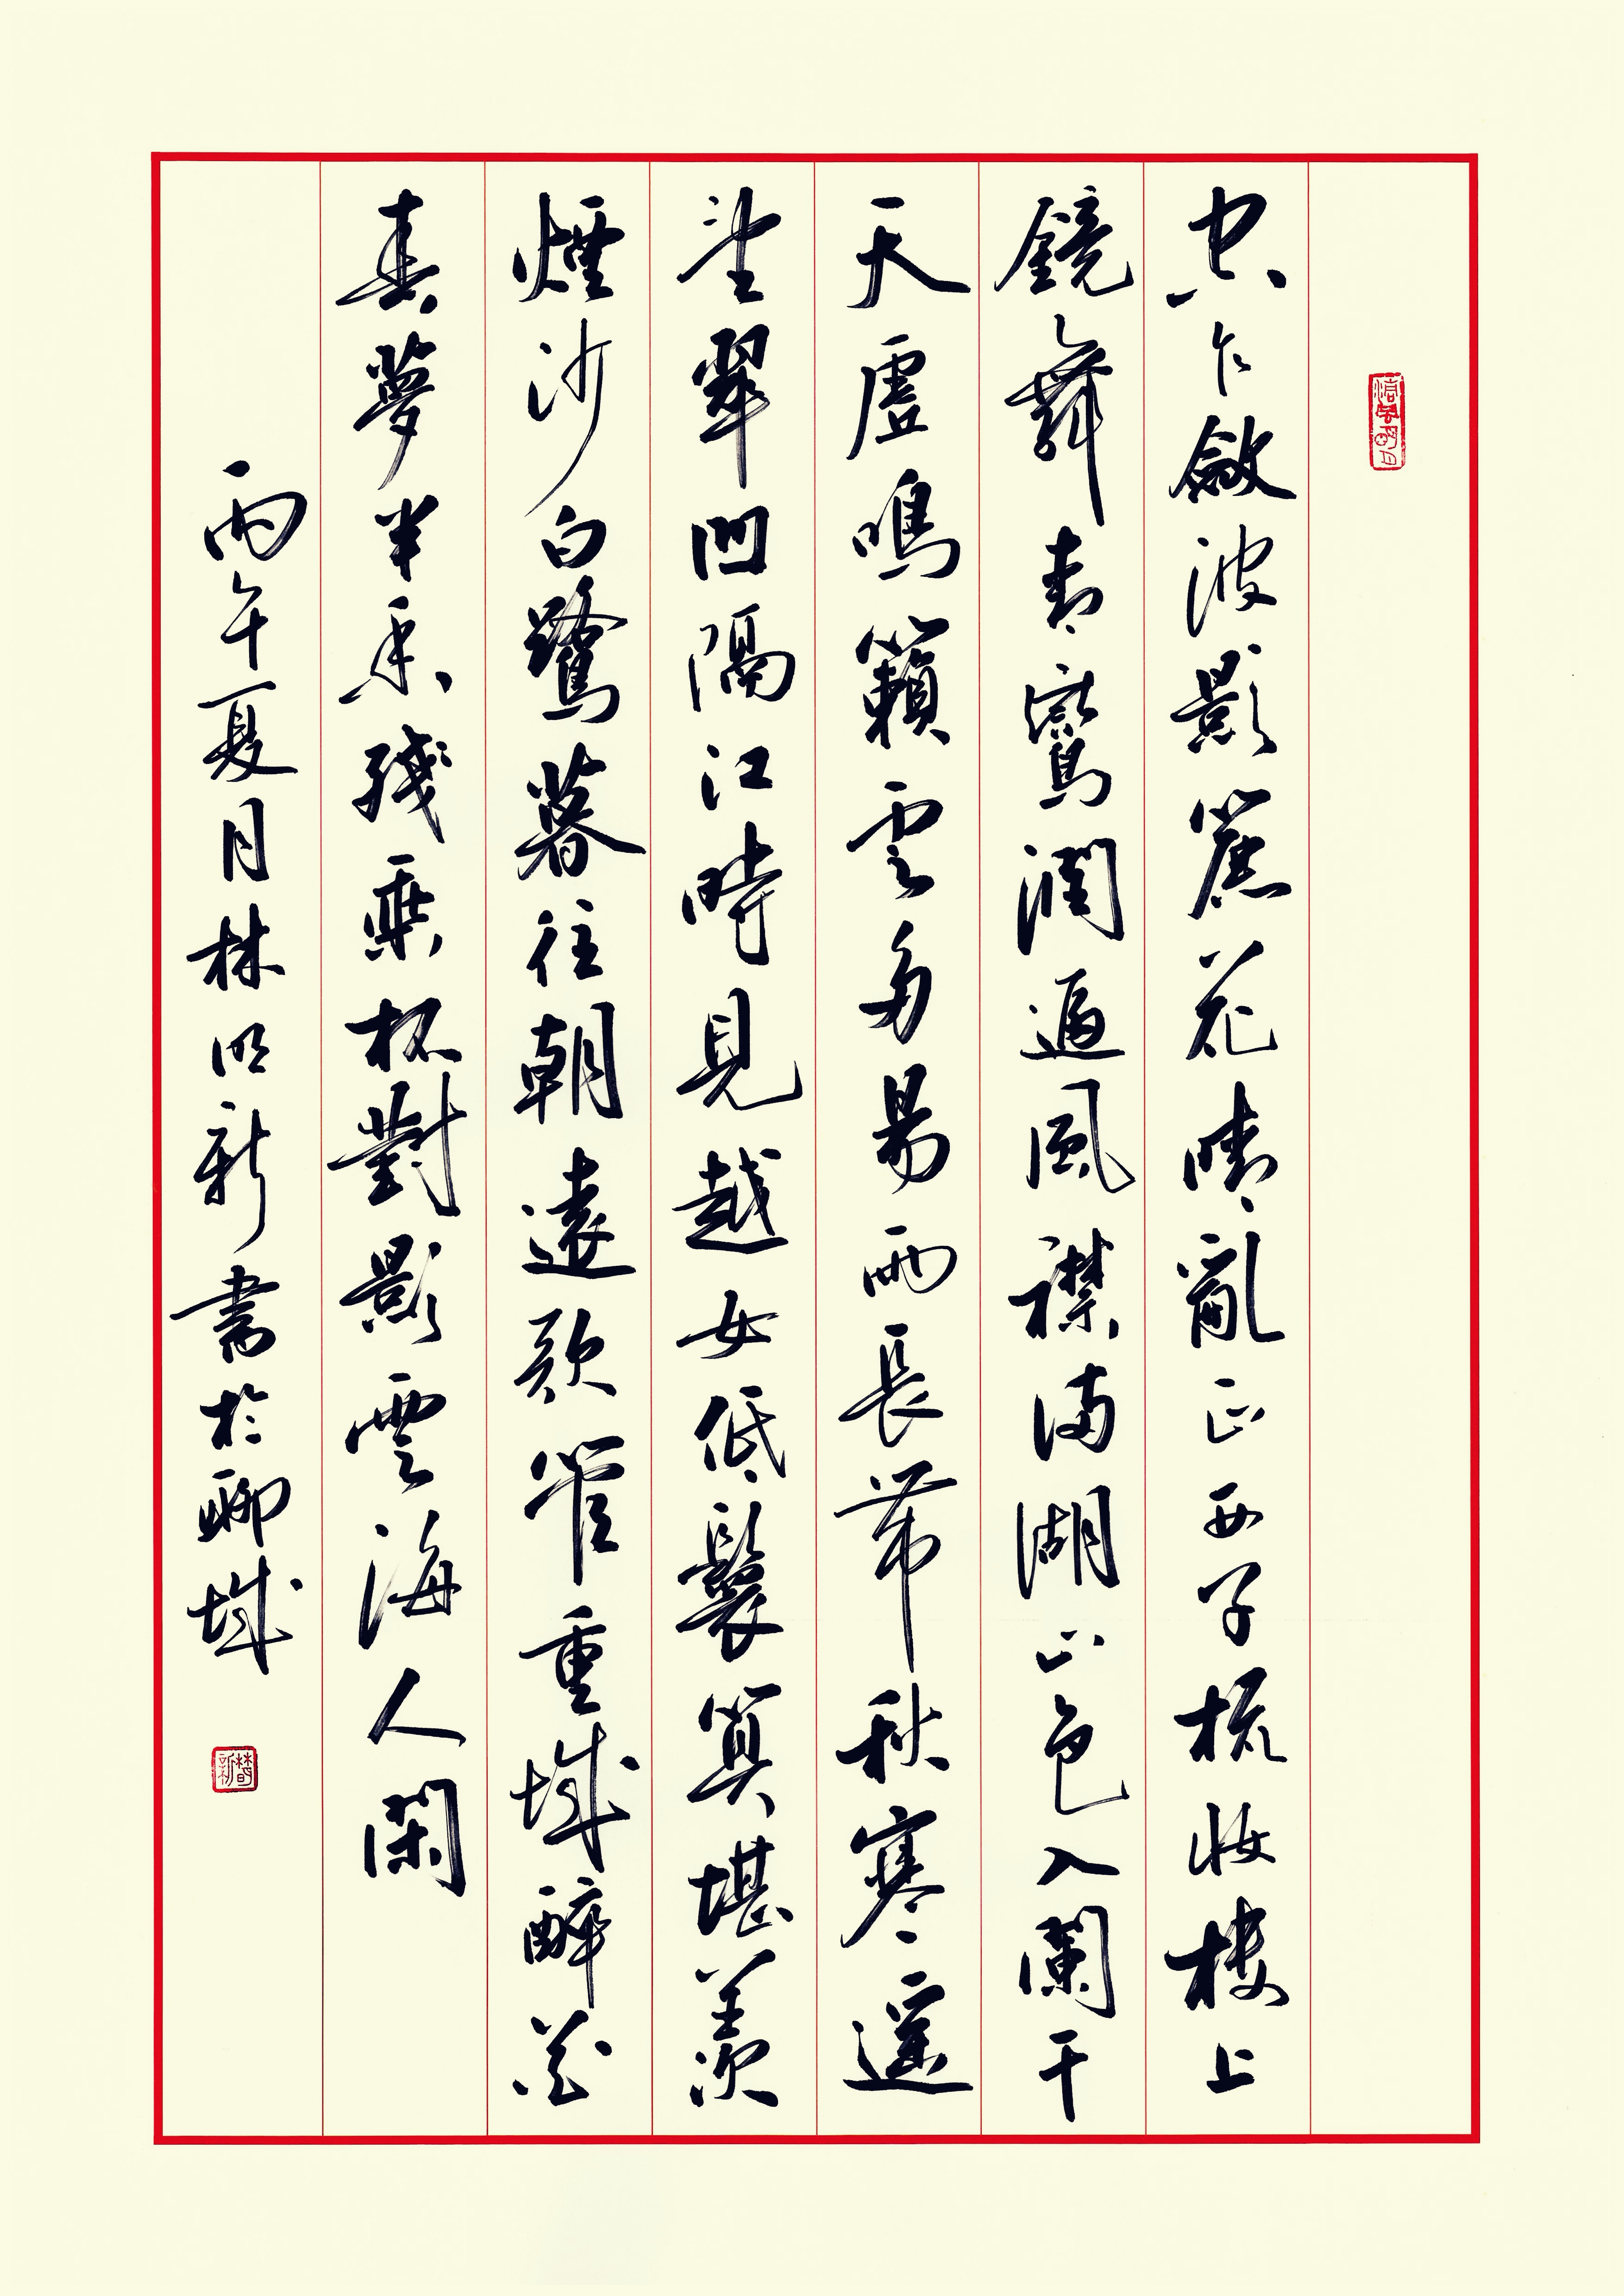 空乍斂波影簾花晴亂正西子梳妝樓上
鏡舞青鸞潤逼風襟滿湖山色入闌干
天虛鳴籟雲多易雨長帶秋寒遙
望翠凹隔江時見越女低鬟算堪羨
煙沙白鷺暮往朝還歌管重城醉花
春夢半香殘乘杯對影雲海人閑
丙午夏月林明新書於聊城